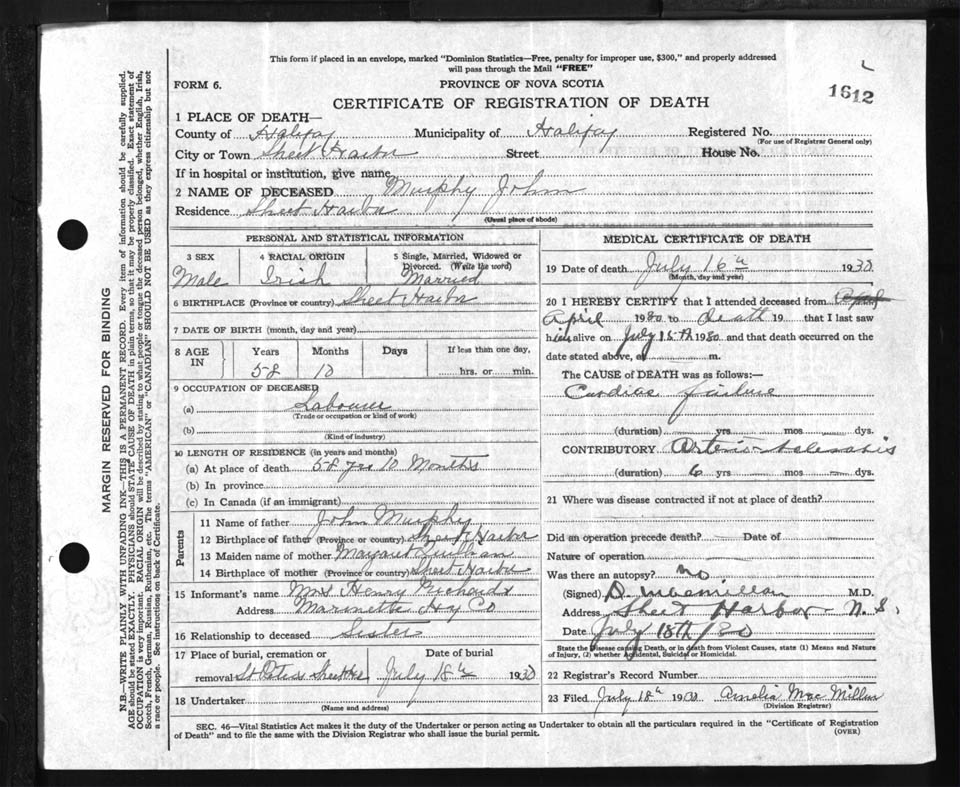 This form if placed in an envelope, marked "Dominion Statistics—Free, penalty for improper use, $300," and properly addressed
will pass through the Mail "FREE"
FORM 6.
PROVINCE OF NOVA SCOTIA
1612
CERTIFICATE OF REGISTRATION OF DEATH
1 PLACE OF DEATH—
County of Halifax Municipality of Halifax Registered No.
(For use of Registrar General only)
City or Town Sheet Harbor Street House No.
If in hospital or institution, give name
2 NAME OF DECEASED Murphy John
Residence Sheet Harbor
(Usual place of abode)
PERSONAL AND STATISTICAL INFORMATION
3 SEX 4 RACIAL ORIGIN 5 Single, Married, Widowed or
Divorced. (Write the word)
Male Irish Married
6 BIRTHPLACE (Province or country) Sheet Harbor
7 DATE OF BIRTH (month, day and year)
8 AGE IN Years Months Days If less than one day,
58 10 hrs. or min.
9 OCCUPATION OF DECEASED
(a) Labourer
(Trade or occupation or kind of work)
(b)
(Kind of industry)
10 LENGTH OF RESIDENCE (in years and months)
(a) At place of death 58 yrs 10 Months
(b) In province
(c) In Canada (if an immigrant)
Parents
11 Name of father John Murphy
12 Birthplace of father (Province or country) Sheet Harbor
13 Maiden name of mother Margaret
14 Birthplace of mother (Province or country) Sheet Harbor
15 Informant's name Mrs Henry Richards
Address Marinette Hx Co
16 Relationship to deceased Sister
17 Place of burial, cremation or Date of burial
removal St Peters Sheet Hr July 18th 1930
18 Undertaker
(Name and address)
MEDICAL CERTIFICATE OF DEATH
19 Date of death July 16th 1930
(Month, day and year)
20 I HEREBY CERTIFY that I attended deceased from April
April 1930 to death 19 that I last saw
him alive on July 15th 1930 and that death occurred on the
date stated above, at m.
The CAUSE of DEATH was as follows:—
Cardiac failure
(duration) yrs mos dys.
CONTRIBUTORY Arterio-sclerosis
(duration) 6 yrs mos dys.
21 Where was disease contracted if not at place of death?
Did an operation precede death? Date of
Nature of operation
Was there an autopsy? no
(Signed) D. McMillan M.D.
Address Sheet Harbor N.S.
Date July 18th/30
State the Disease causing Death, or in death from Violent Causes, state (1) Means and Nature
of Injury, (2) whether Accidental, Suicidal or Homicidal.
22 Registrar's Record Number
23 Filed July 18th 1930 Amelia MacMillan
(Division Registrar)
SEC. 46—Vital Statistics Act makes it the duty of the Undertaker or person acting as Undertaker to obtain all the particulars required in the "Certificate of Registration
of Death" and to file the same with the Division Registrar who shall issue the burial permit.
(OVER)
MARGIN RESERVED FOR BINDING
N.B.—WRITE PLAINLY WITH UNFADING INK—THIS IS A PERMANENT RECORD. Every item of information should be carefully supplied.
AGE should be stated EXACTLY. PHYSICIANS should STATE CAUSE OF DEATH in plain terms, so that it may be properly classified. Exact statement of
OCCUPATION is very important. RACIAL ORIGIN will be described by stating to what people or tongue the deceased person belonged, whether English, Irish,
Scotch, French, German, Russian, Ruthenian, etc. The terms "AMERICAN" or "CANADIAN" SHOULD NOT BE USED as they express citizenship but not
a race or people. See instructions on back of Certificate.